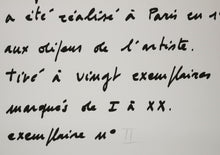 a été réalisé à Paris en 1
aux dépens de l'artiste.
Tiré à vingt exemplaires
marqués de I à XX.
exemplaire n° II